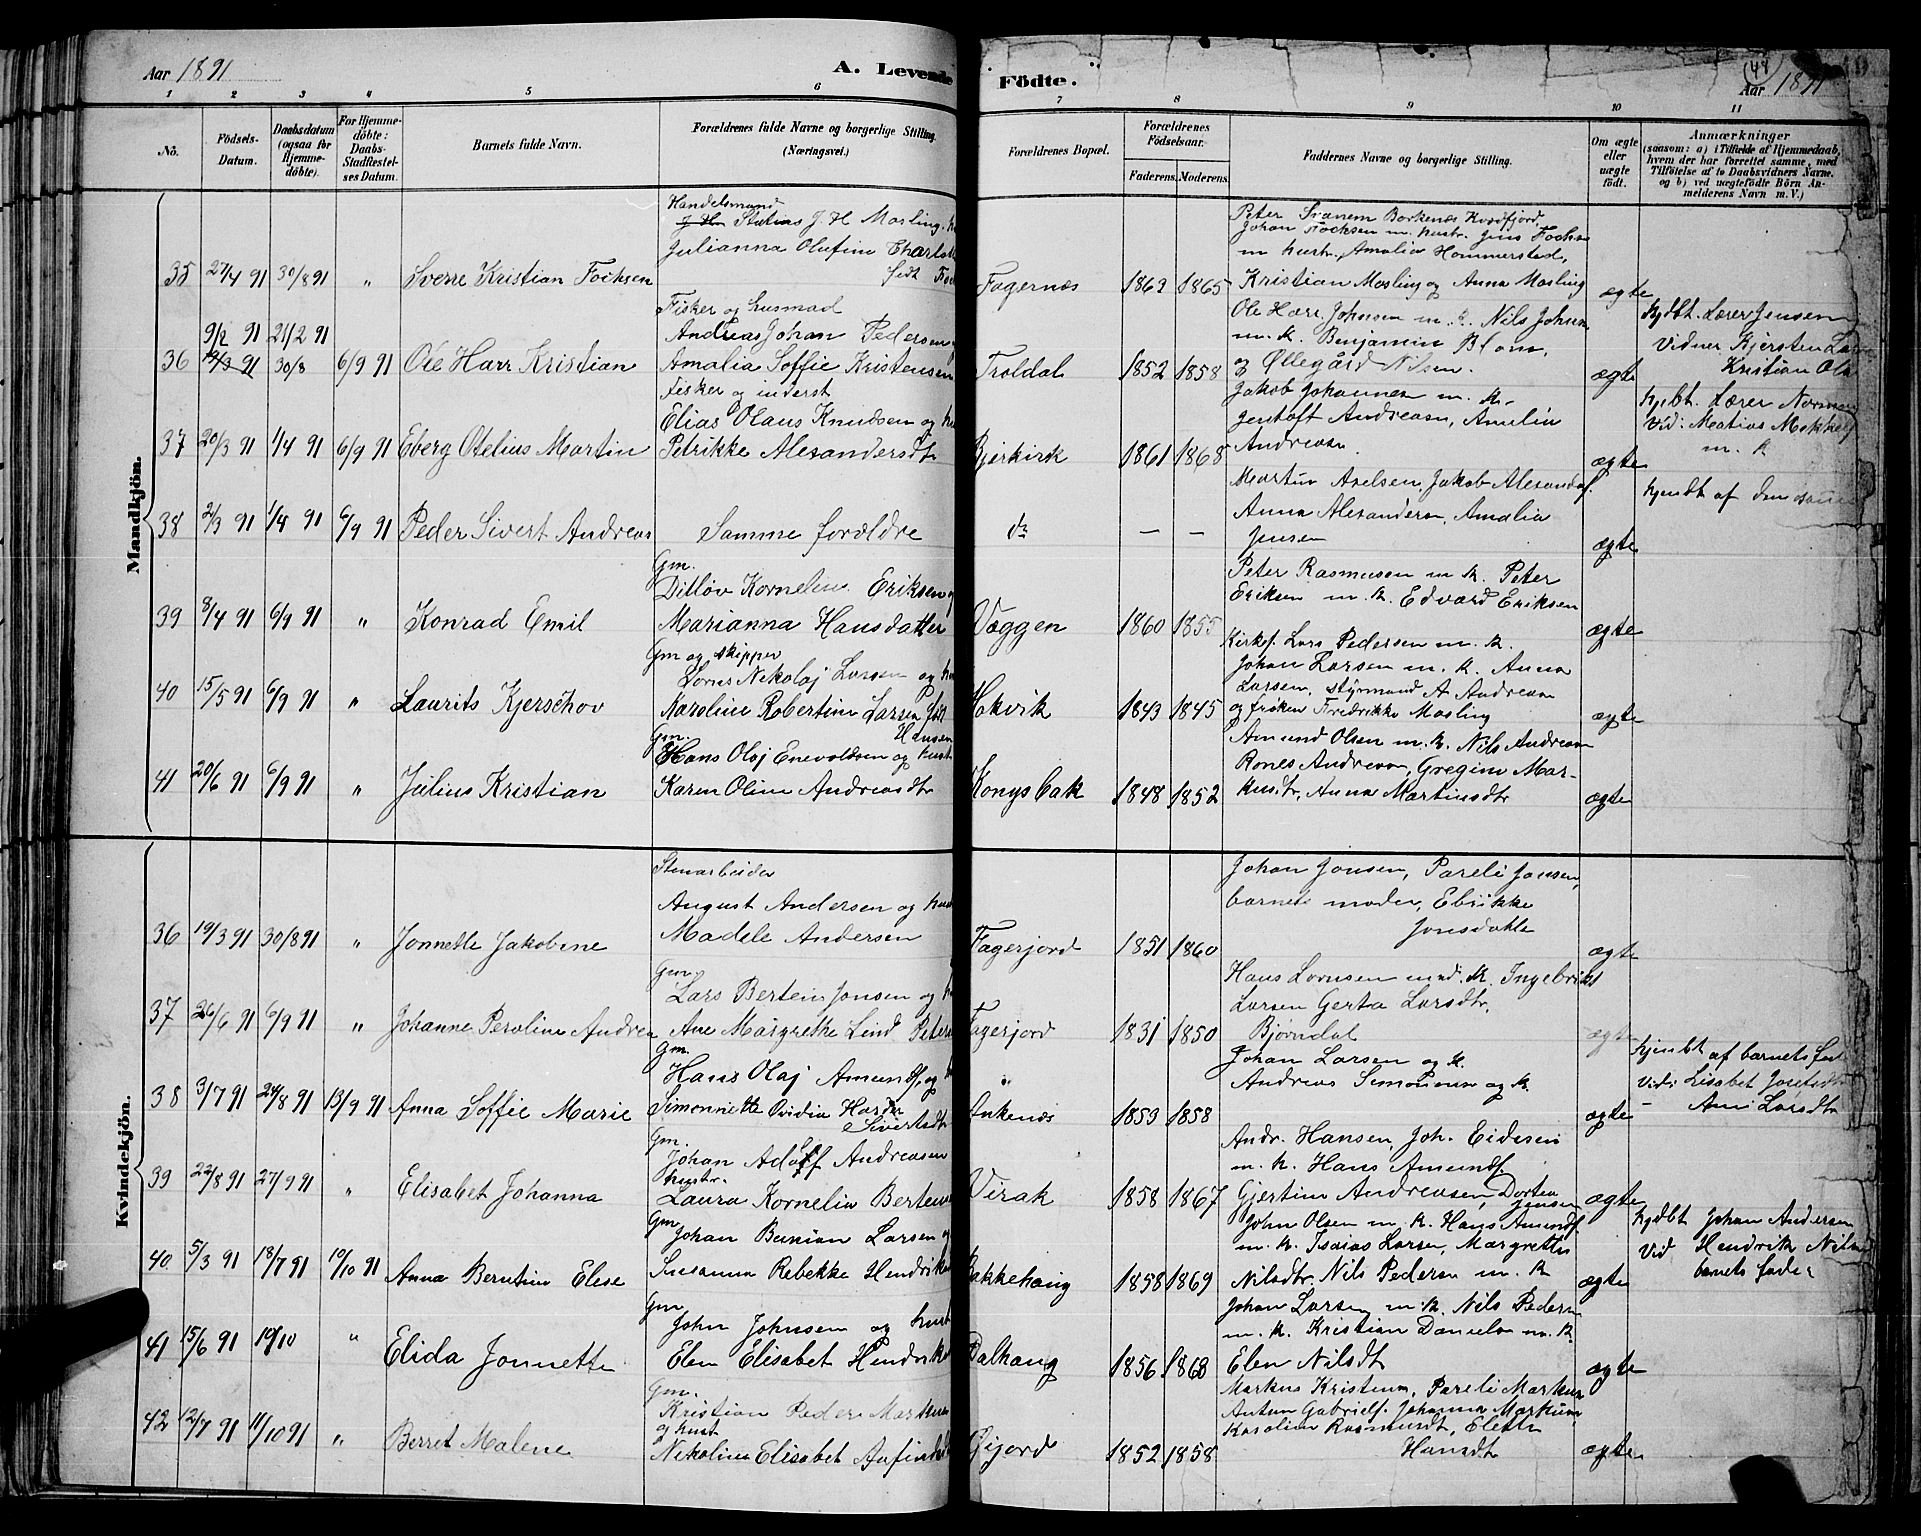 Aar 1891
A. Levende
Födte.
44
Aar 1891
1 2 3 4 5 6 7 8 9 10 11
No.
Födsels-Datum.
Daabsdatum (ogsaa for Hjemmedöbte).
For Hjemmedöbte: Daabs-Stadfæstelses Datum.
Barnets fulde Navn.
Forældrenes fulde Navne og borgerlige Stilling. (Næringsvei.)
Forældrenes Bopæl.
Forældrenes Födselsaar.
Faderens. Moderens.
Faddernes Navne og borgerlige Stilling.
Om ægte eller uægte födt.
Anmærkninger
(saasom: a) i Tilfælde af Hjemmedaab,
hvem der har forrettet samme, med
Tilföielse af to Daabsvidners Navne.
og b) ved uægtefödte Börn Anmelderens Navn m.V.)
Mandkjön.
Handelsmand
Statius J. H Mosling
Julianna Olufine Charlotte
födt
35 27/4 91 30/8 91 " Sverre Kristian Focksen
Fagernæs 1862 1865
Peter Svanem Borkenæs Kvædfjord,
Johan Focksen m. hustr. Jens Focksen
m hustr. Amalia Hommerstad,
Kristian Mosling og Anna Mosling
ægte
Fisker og husmad
9/2 91 21/2 91 Andreas Johan Pedersen
36 12/3 91 30/3 6/9 91 Ole Harr Kristian Amalia Soffie Kristensen
Troldal 1852 1858
Ole Harr. Johnsen m. k. Nils Johnsen
m. k. Benjamin Blom,
og Øllegård Nilsen.
ægte
hjdbt. Lærer Jensen
Vidner Kjersten
Kristian
Fisker og inderst
Elias Olaus Knudsen og
37 20/3 91 1/4 91 6/9 91 Eberg Otelius Martin Petrikke Alexandersdtr
Bjerkvik 1861 1868
Jakob Johannesen m. k.
Jentoft Andreasen, Amalia
Andreasen
ægte
hjbt. Lærer Norman
Vid: Matias
m. k
38 2/3 91 1/4 91 6/9 91 Peder Sivert Andreas Samme forældre
do — —
Martin Axelsen, Jakob Alexandsf.
Anna Alexandersen, Amalia
Jensen
ægte
hjemdt af den samme
Gm.
Ditløv Kornelius Eriksen
39 8/4 91 6/9 91 " Konrad Emil Marianna Hansdatter
Væggen 1860 1855
Peter Rasmusen m k. Peter
Eriksen m. k. Edvard Eriksen
ægte
Gm og skipper
Lorns Nikolaj Larsen og
40 15/5 91 6/9 91 " Laurits Kjerschov Karoline Robertine Larsen født
Hansen
Hokvik 1843 1845
Kirkes. Lars Pedersen m. k.
Johan Larsen m. k. Anna
Larsen, styrmand A Andreasen
og frøken Fredrikke Mosling
ægte
Gm.
Hans Olaj Enevoldsen og hust
41 20/6 91 6/9 91 " Julius Kristian Karen Oline Andreasdtr
Kongsbak 1848 1852
Amund Olsen m. k. Nils Andreasen
Rones Andreasen, Gregine Mar-
kusdtr, Anna Martinsdtr
ægte
Kvindekjön.
Stenarbeider
August Andersen og
36 19/3 91 30/8 91 " Jonnette Jakobine Madele Andersen
Fagerjord 1851 1860
Johan Jonsen, Pareli Jonsen,
barnets moder, Ebrikke
Jonsdatter
ægte
Gm.
Lars Berteus Jonsen og
37 26/6 91 6/9 91 " Johanne Peroline Andrea Ane Margrethe Lind
Fagerjord 1831 1850
Hans Lornsen med k. Ingebrikt
Larsen Gerta Larsdtr,
Bjørndal
ægte
Gm.
Hans Olaj Amundsf, og
38 3/7 91 24/8 91 13/9 91 Anna Soffie Marie Simonnette Ovidia
Sivertsdtr
Ankenæs 1853 1858
Johan Larsen og k.
Andreas Simonsen og k
ægte
hjembt af barnets far
Vid: Lisabet Josefsdtr
Ane Larsdtr
Gm.
Johan Adolf Andreasen
hustr.
39 22/8 91 27/9 91 " Elisabet Johanna Laura Kornelia
Virak 1858 1867
Andr. Hansen, Joh. Eidesen
m. k. Hans Amundsf.
Gjertine Andreasen, Dortea
Jensen
ægte
Gm
Johan Benian Larsen og
40 5/3 91 18/7 91 19/10 91 Anna Berntine Elese Susanna Rebekke
Bakkehaug 1858 1869
John Olsen m. k. Hans Amundsf.
m. k. Isaias Larsen, Margrethe
Nilsdtr. Nils Pedersen m. k
ægte
hjdbt Johan Andersen
Vid Hendrik Nilsen
barnets fader
Gm
John Johnsen og hust
41 15/6 91 19/10 " Elida Jonnette Elen Elisabet
Dalhaug 1856 1868
Johan Larsen m k. Nils Pedersen
m. k. Kristian Danielsen m. k.
Elen Nilsdt
ægte
Gm.
Kristian Peder Markusen
og hust
42 12/7 91 11/10 91 " Berret Malene Nikoline Elisabet
Øijord 1852 1858
Markus Kristensen, Pareli Markusen
Anton Gabrielsf. Johanna Markusen
Karoline Rasmusdt, Elette
Hansdt
ægte